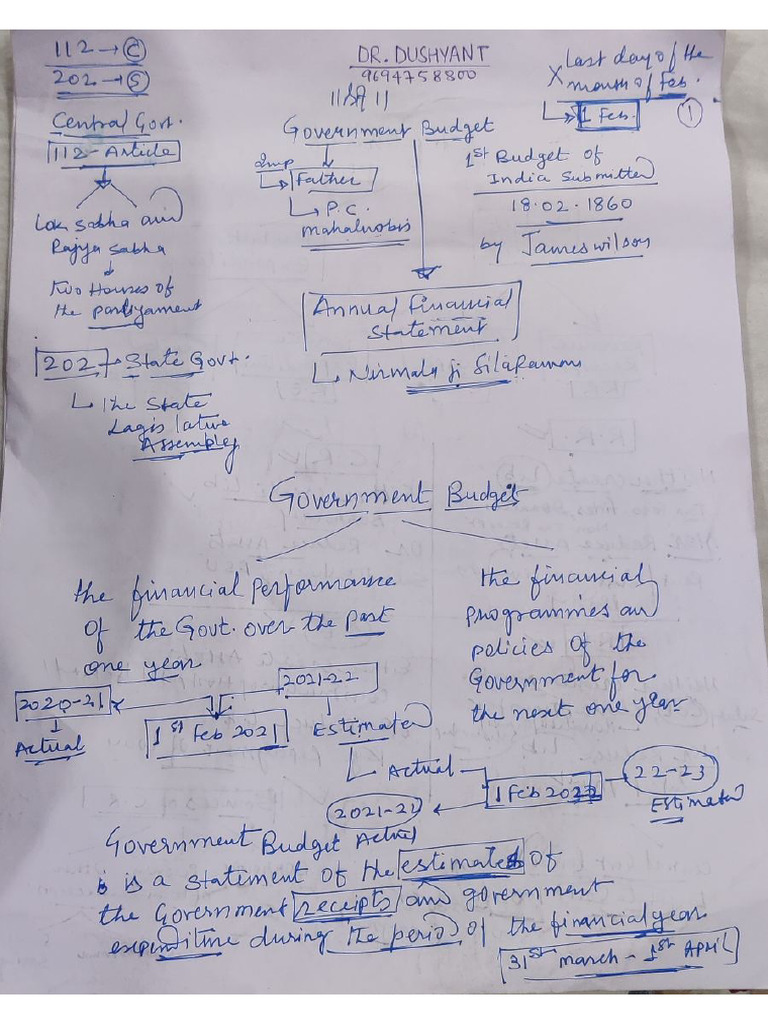 112 → C
202 → S
DR. DUSHYANT
9694758800
॥ श्री ॥
X Last day of the
month of Feb.
1 Feb.
1
Central Govt.
112 - Article
Lok Sabha and
Rajya Sabha
Two Houses of
the parliyament
202 → State Govt.
the State
Lagislative
Assembley
Government Budget
Imp
Father
P.C.
mahalnobis
1st Budget of
India Submitted
18.02.1860
by Jameswilson
Annual Financial
Statement
Nirmala ji Sitaraman
Government Budget
the financial performance
of the Govt. over the past
one year
the financial
programmies and
policies of the
Government for
the next one year
2020-21
Actual
1st Feb 2021
2021-22
Estimated
Actual
1 Feb 2022
22-23
Estimated
2021-22
Actual
Government Budget
is a statement of the estimates of
the Government receipts and government
expenditure during the period of the financial year
31st march - 1st April